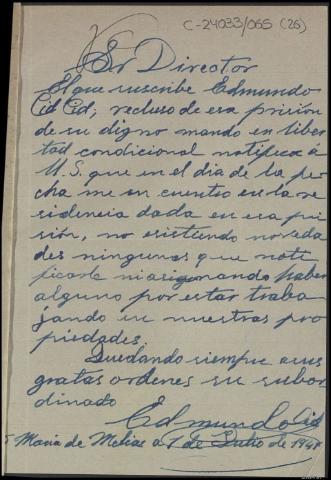 C-24033/065 (26)
Sr Director
El que suscribe Edmundo
Cid Cid; recluso de esa prisión
de su digno mando en liber
tad condicional notifica á
U.S. que en el dia de la fe
cha me en cuentro en la re
sidencia dada en esa pri
sión, no esistiendo noveda
des ningunas que noti
ficarle ni asignando haber
alguno por estar traba
jando en nuestras pro
piedades.
Quedando siempre a sus
gratas ordenes su subor
dinado
Edmundo Cid
Maria de Melias a 1 de Julio de 1941